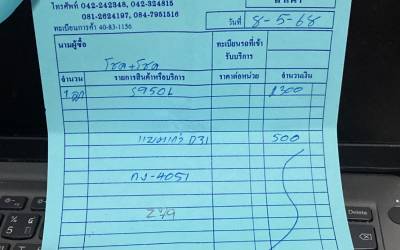 โทรศัพท์ 042-242348, 042-324815
081-2624197, 084-7951516
ทะเบียนการค้า 40-83-1156
วันที่ 8-5-68
นามผู้ซื้อ
ทะเบียนรถที่เข้ารับบริการ
โชค+โชค
จำนวน รายการสินค้าหรือบริการ ราคาต่อหน่วย จำนวนเงิน
1 ลูก S950L 1300
D31 500
กง-4051